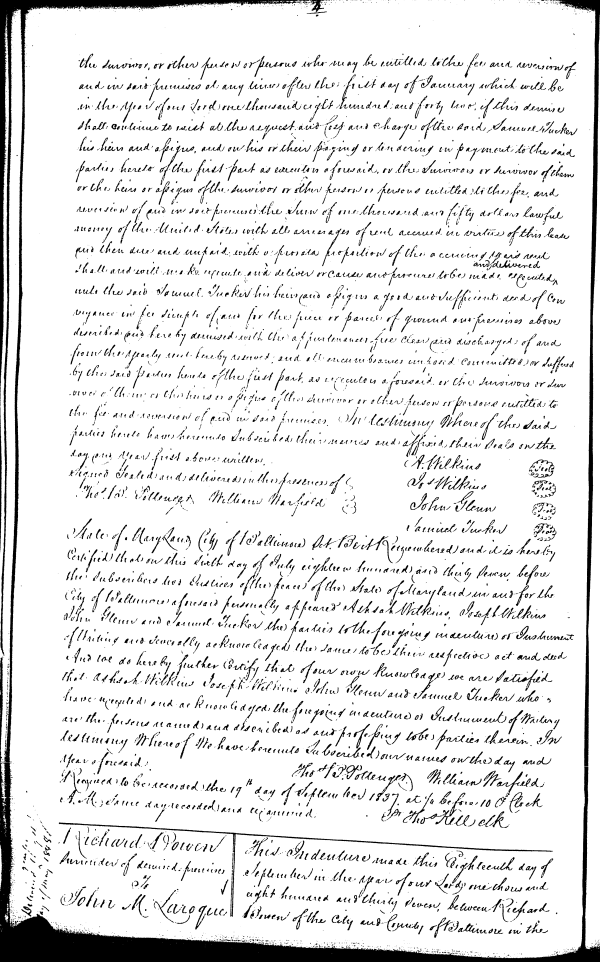 4
the survivor, or other person or persons who may be entitled to the fee and reversion of
and in said premises at any time after the first day of January which will be
in the year of our Lord one thousand eight hundred and forty two, if this demise
shall continue to exist at the request and cost and charge of the said Samuel Tucker
his heirs and assigns, and on his or their paying or tendering in payment to the said
parties hereto of the first part as executors aforesaid, or the Survivors or survivor of them
or the heirs or assigns of the survivor or other person or persons entitled to the fee, and
reversion of and in said premises the Sum of one thousand and fifty dollars lawful
money of the United States with all arrearages of rent accrued in virtue of this lease
and then due and unpaid, with a prorata proportion of the accruing years rent
shall and will make execute and deliver or cause and procure to be made executed and delivered
unto the said Samuel Tucker his heirs and assigns a good and sufficient deed of Con
veyance in fee simple of and for the piece or parcel of ground and premises above
described and hereby demised with the appurtenances, free clear and discharged of and
from the yearly rent hereby reserved, and all encumbrances imposed committed or suffered
by the said parties hereto of the first part, as executors aforesaid, or the survivors or sur
vivor of them or the heirs or assigns of the survivor or other person or persons entitled to
the fee and reversion of and in said premises. In testimony Whereof the said
parties hereto have hereunto Subscribed their names and affixed their Seals on the
day and year first above written.
Signed Sealed and delivered in the presence of
Thos. Pottenger William Warfield
A. Wilkins Seal
Jos Wilkins Seal
John Glenn Seal
Samuel Tucker Seal
State of Maryland City of Baltimore Sct. Be it Remembered and it is hereby
Certified that on this sixth day of July eighteen hundred and thirty Seven, before
the Subscribers two Justices of the peace of the State of Maryland in and for the
City of Baltimore aforesaid personally appeared Achsah Wilkins, Joseph Wilkins
John Glenn and Samuel Tucker the parties to the foregoing indenture or Instrument
of Writing and severally acknowledged the same to be their respective act and deed
And we do hereby further Certify that of our own knowledge we are Satisfied
that Achsah Wilkins Joseph Wilkins John Glenn and Samuel Tucker who
have executed and acknowledged the foregoing indenture or Instrument of Writing
are the persons named and described as and professing to be parties therein. In
testimony Whereof We have hereunto Subscribed our names on the day and
year aforesaid.
Thos Pottenger William Warfield
Received to be recorded the 19th day of September 1837, at ½ before 10 O'Clock
A.M. Same day recorded and examined.
Pr Thos Kell clk
Richard Bowen
Surrender of demised premises
To
John M. Laroque
This Indenture made this Eighteenth day of
September in the year of our Lord, one thousand
eight hundred and thirty Seven, between Richard
Bowen of the City and County of Baltimore in the